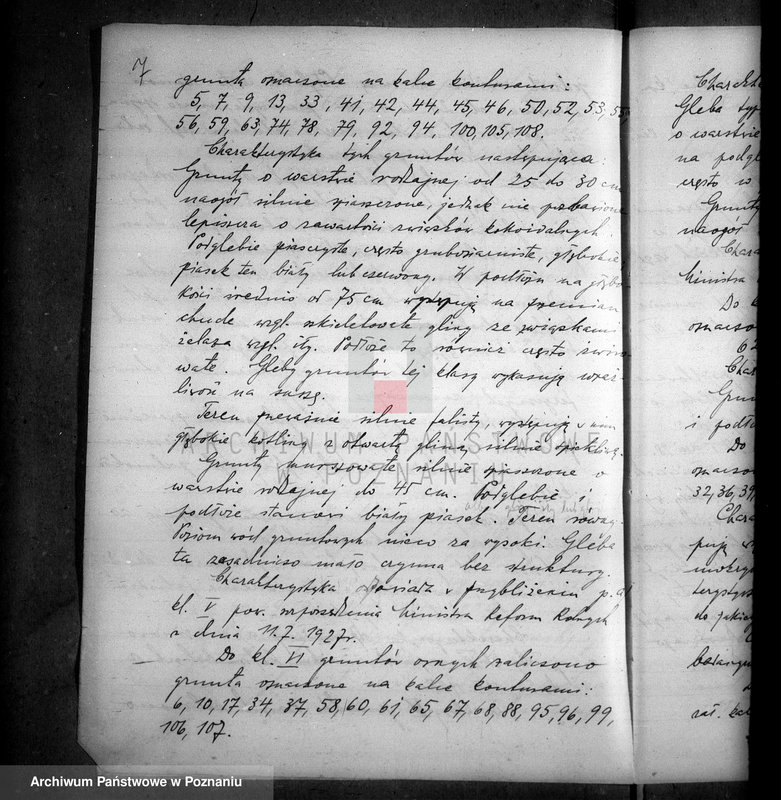 7
grunta oznaczone na kalce konturami:
5, 7, 9, 13, 33, 41, 42, 44, 45, 46, 50, 52, 53,
56, 59, 63, 74, 78, 79, 92, 94, 100, 105, 108.
Charakterystyka tych gruntów następująca:
Grunty o warstwie rodzajnej od 25 do 30 cm
naogół silnie spiaszczone, jednak nie pozbawione
lepiszcza o zawartości związków koloidalnych.
Podglebie piaszczyste, często gruboziarniste, głębokie
piasek ten biały lub czerwony. W podłożu na głębo-
kości średnio od 75 cm występują na przemian
chude wzgl. szkieletowate gliny ze związkami
żelaza wzgl. iły. Podłoże to również często żwiro-
wate. Gleby gruntów tej klasy wykazują wraż-
liwość na suszę.
Teren przeważnie silnie falisty, występują w nim
głębokie kotliny z otwartą gliną silnie
Grunty murszowate silnie spiaszczone o
warstwie rodzajnej do 45 cm. Podglebie i
podłoże stanowi biały piasek. Teren
Poziom wód gruntowych nieco za wysoki. Gleba
ta zasadniczo mało czynna bez struktury.
Charakterystyka powiada w przybliżeniu p. a)
kl. V pow. rozporządzenia Ministra Reform Rolnych
z dnia 11.7.1927r.
Do kl. VI gruntów ornych zaliczono
grunta oznaczone na kalce konturami:
6, 10, 17, 34, 37, 58, 60, 61, 65, 67, 68, 88, 95, 96, 99,
106, 107.
Gleba
o warstwie
często w
Grunty
naogół
Ministra
Do
i podło
Do
32, 36, 39
ARCHIWUM PAŃSTWOWE
W POZNANIU
Archiwum Państwowe w Poznaniu